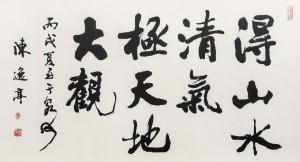 得山水
清氣
極天地
大觀
丙戌夏至于
陳逸亭